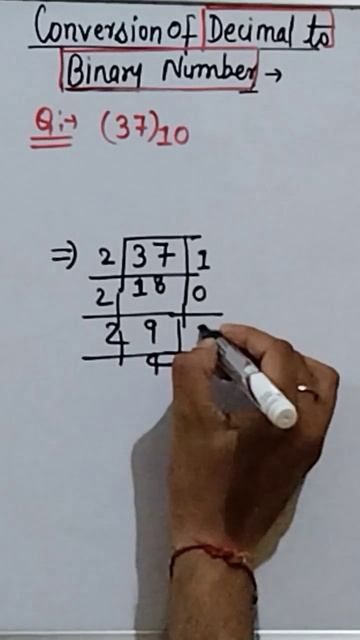 Conversion of Decimal to
Binary Number →
Q:→ (37)10
⇒ 2 37 1
2 18 0
2 9
4